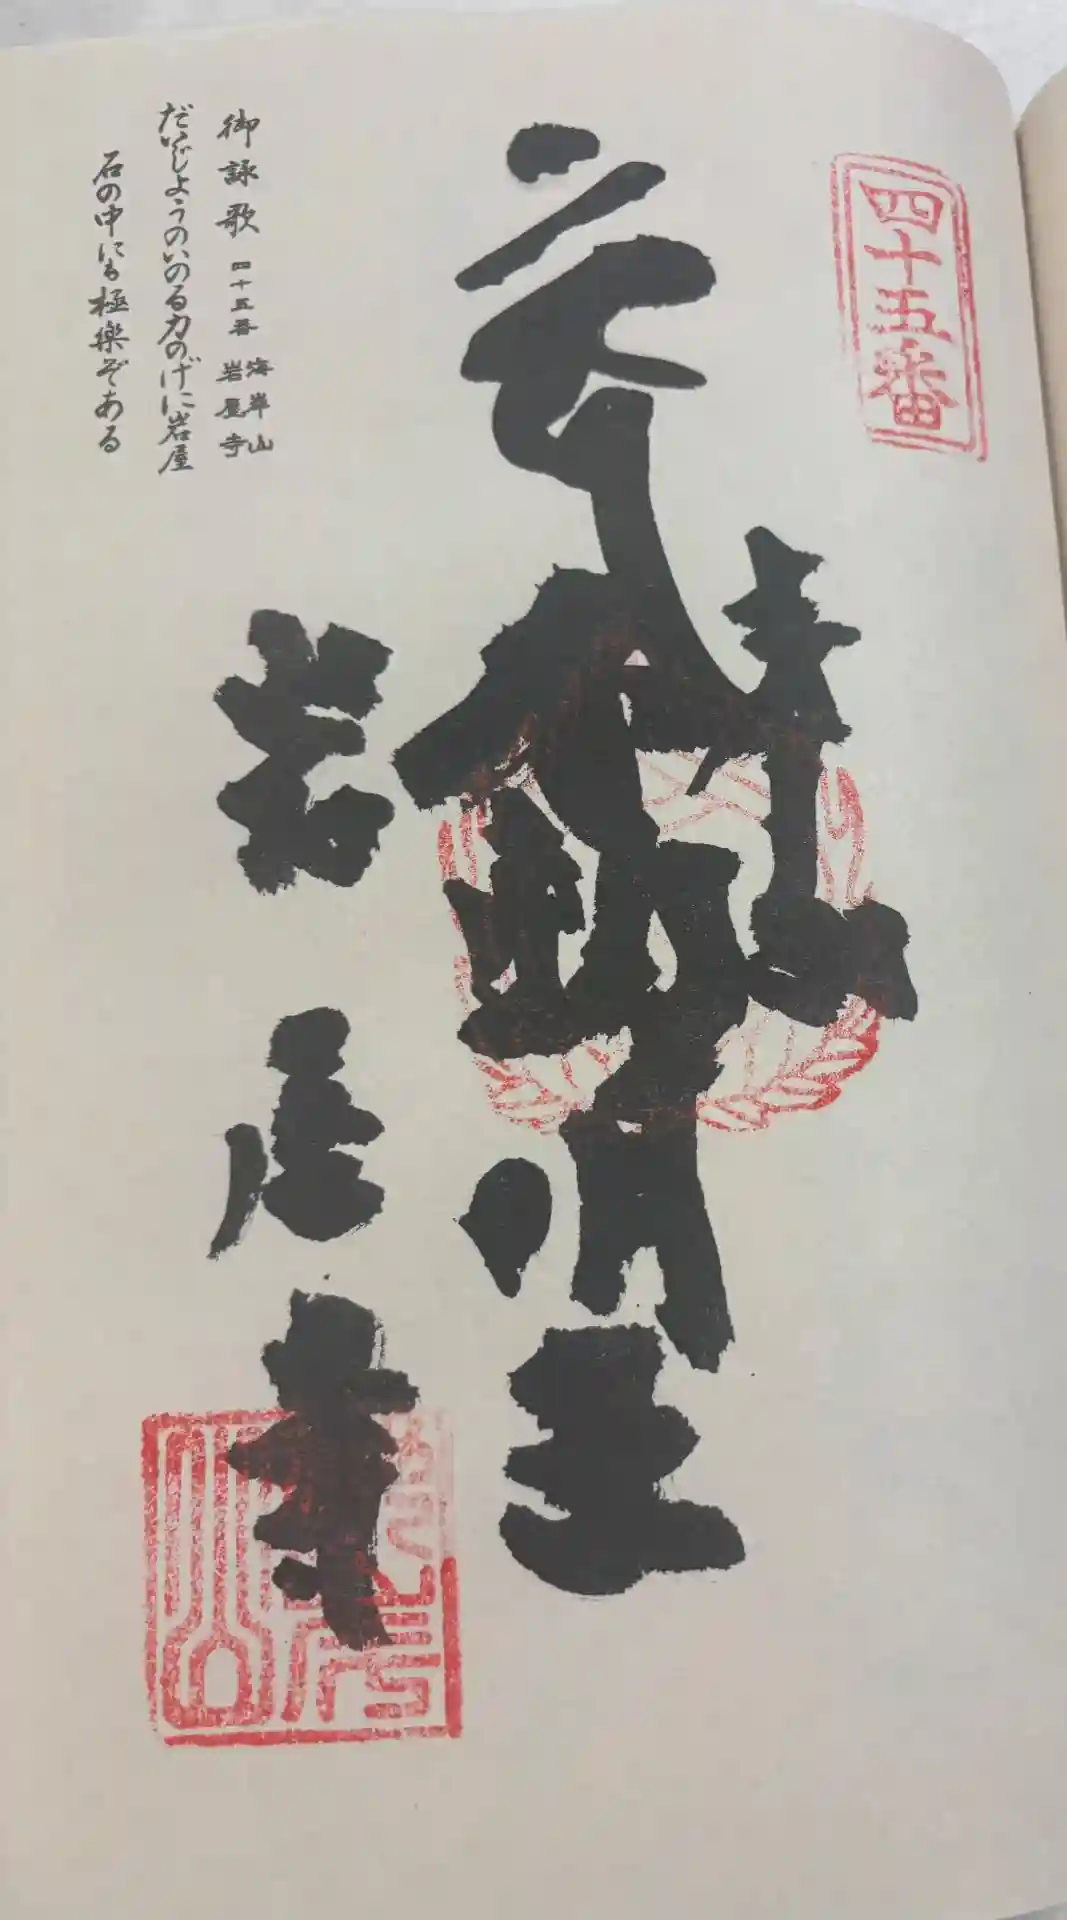 四十五番
不動明王
岩屋寺
御詠歌 四十五番 海岸山 岩屋寺
だいじようのいのる力のげに岩屋
石の中にも極楽ぞある